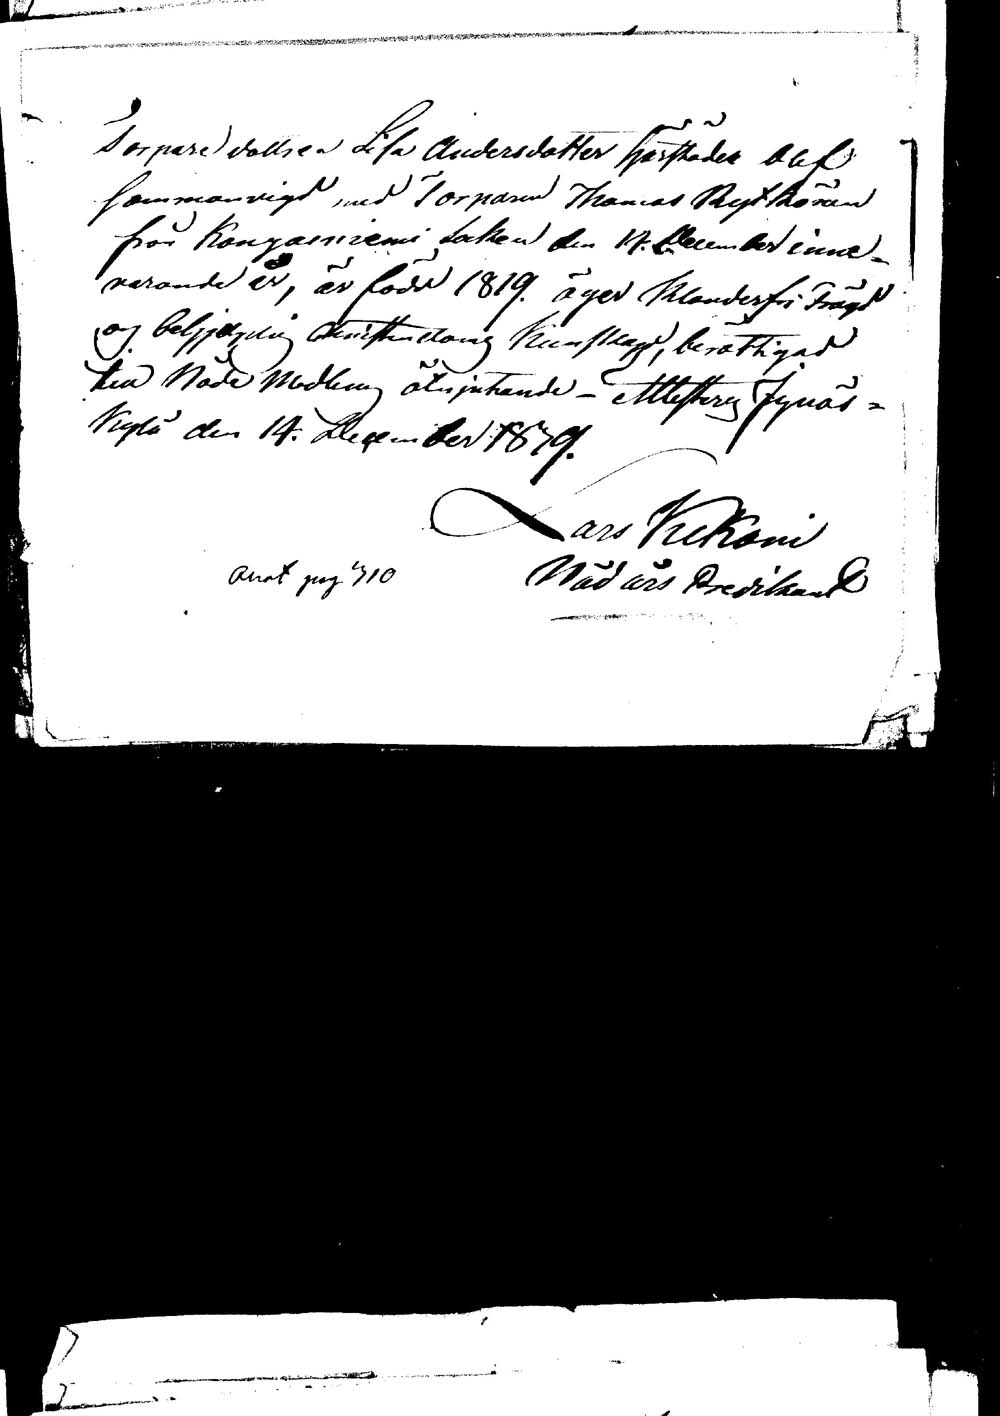 Torpare dottren Lisa Andersdotter härstädes blef
sammanvigd med Torparen Thomas Rytkönen
från Kangasniemi Socken den 14. December inne-
varande år, är född 1819. äger klanderfri Frägd
og christendoms kunskap, berättigad
till Nåde Medlens åtnjutande – Attesterar Jyväs=
kylä den 14. December 1879.
Lars Kukoni
Nådårs Predikant
Anot pag 710